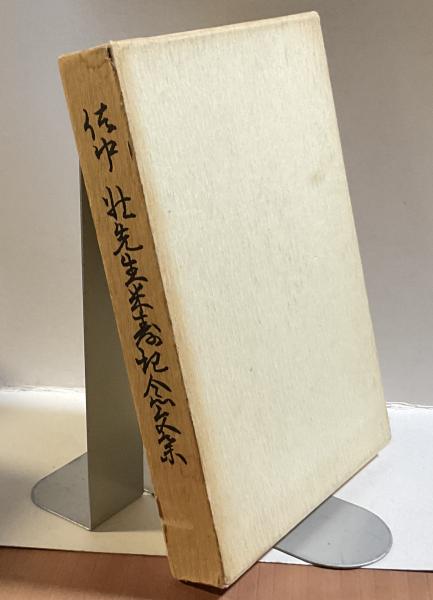 佐中 壮先生米寿記念文集